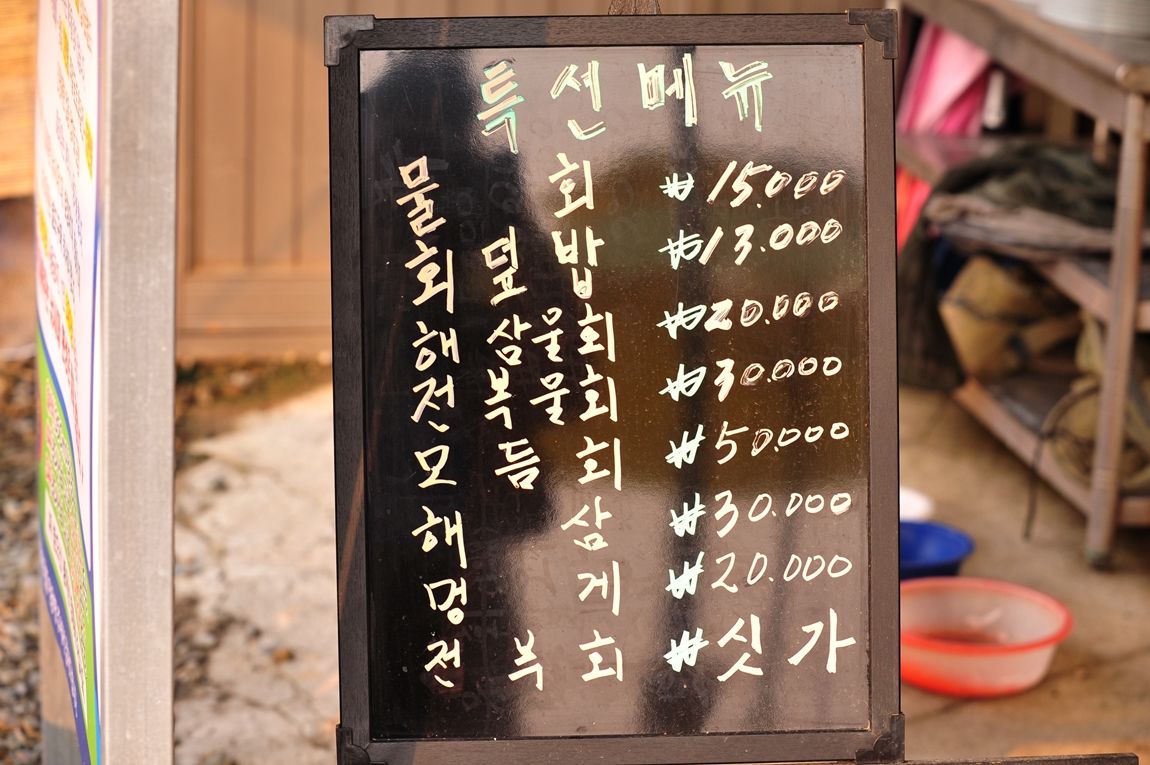 특선메뉴
물회 ₩15.000
회덮밥 ₩13.000
해삼물회 ₩20.000
전복물회 ₩30.000
모듬회 ₩50.000
해삼 ₩30.000
멍게 ₩20.000
전부회 ₩싯가